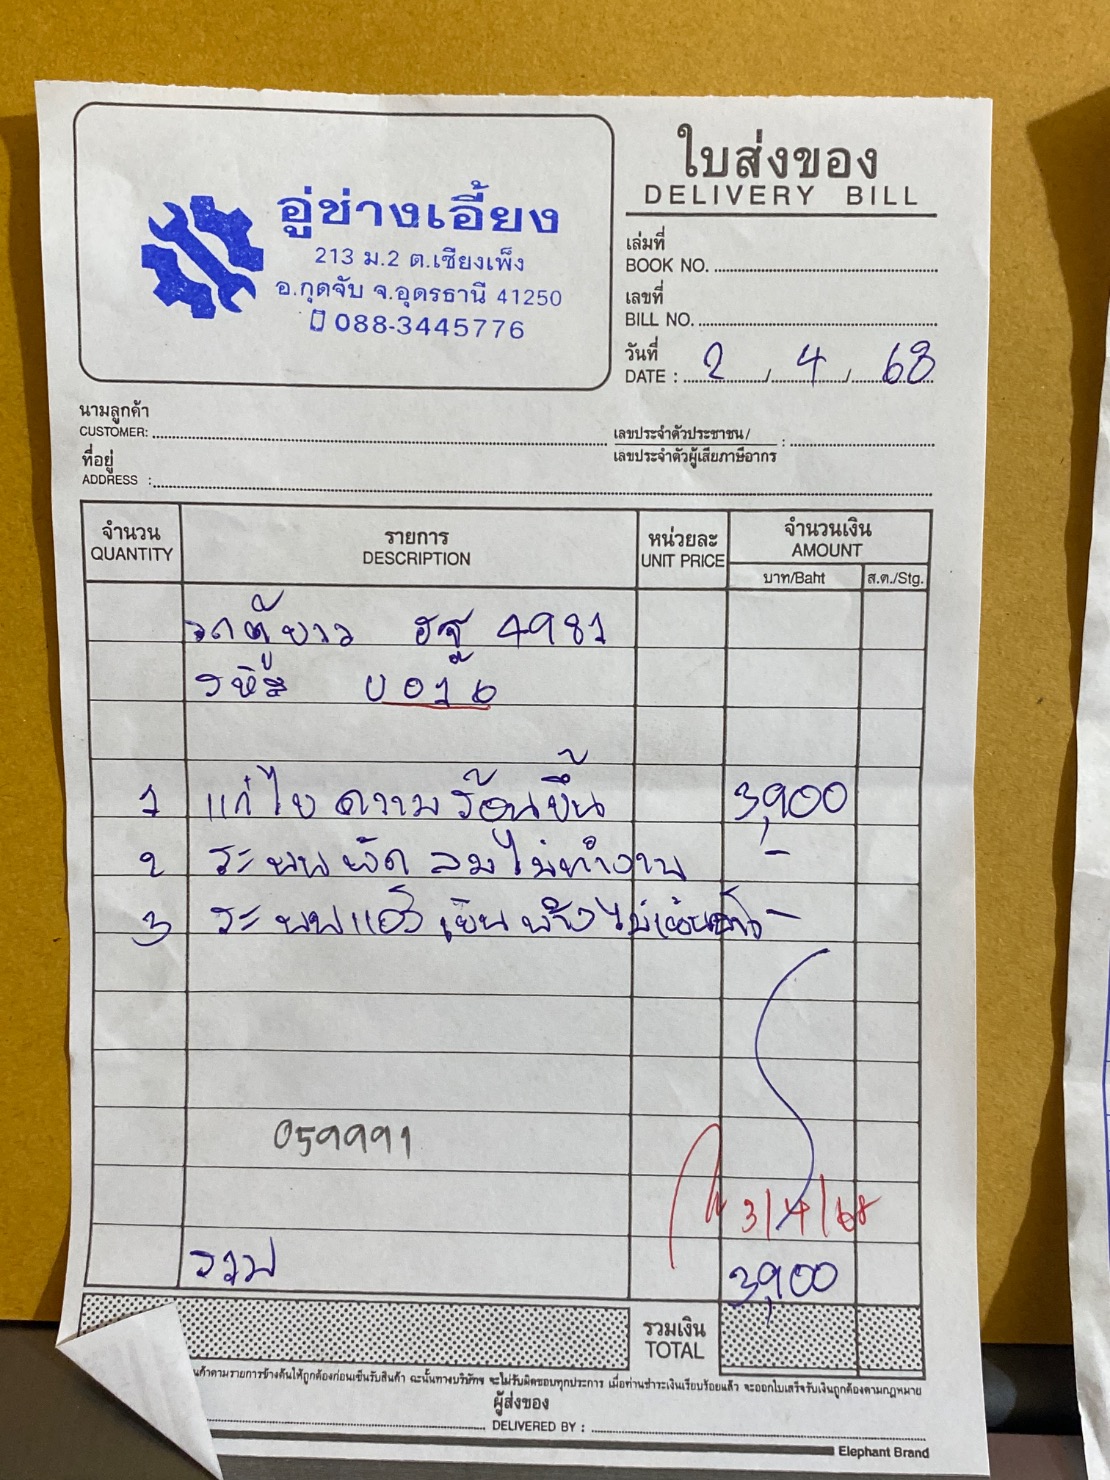 ใบส่งของ
DELIVERY BILL
อู่ช่างเอี้ยง
213 ม.2 ต.เชียงเพ็ง
อ.กุดจับ จ.อุดรธานี 41250
088-3445776
เล่มที่
BOOK NO.
เลขที่
BILL NO.
วันที่
DATE : 2 / 4 / 68
นามลูกค้า
CUSTOMER:
เลขประจำตัวประชาชน /
เลขประจำตัวผู้เสียภาษีอากร :
ที่อยู่
ADDRESS :
จำนวน รายการ หน่วยละ จำนวนเงิน
QUANTITY DESCRIPTION UNIT PRICE AMOUNT
บาท/Baht ส.ต./Stg.
รถตู้ยาว ฮฐ 4981
รหัส บ 016
1 แก้ไขความร้อนขึ้น 3,900
2 ระบบพัดลมไม่ทำงาน -
3 ระบบแอร์เย็นบ้างไม่เย็นบ้าง -
059991
3/4/68
รวม 3,900
รวมเงิน
TOTAL
นค้าตามรายการข้างต้นให้ถูกต้องก่อนเซ็นรับสินค้า ฉะนั้นทางบริษัทฯ จะไม่รับผิดชอบทุกประการ เมื่อท่านชำระเงินเรียบร้อยแล้ว จะออกใบเสร็จรับเงินถูกต้องตามกฎหมาย
ผู้ส่งของ
DELIVERED BY :
Elephant Brand